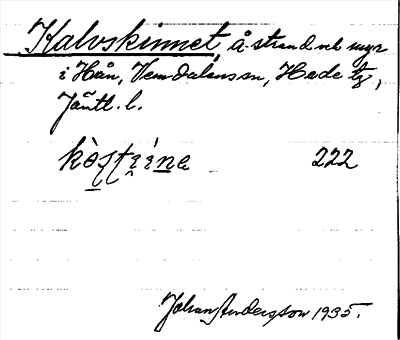 Kalvskinnet, å-strand och myr
i Hån, Vemdalens sn, Hede tg,
Jämtl. l.
222
Johan Andersson 1935.